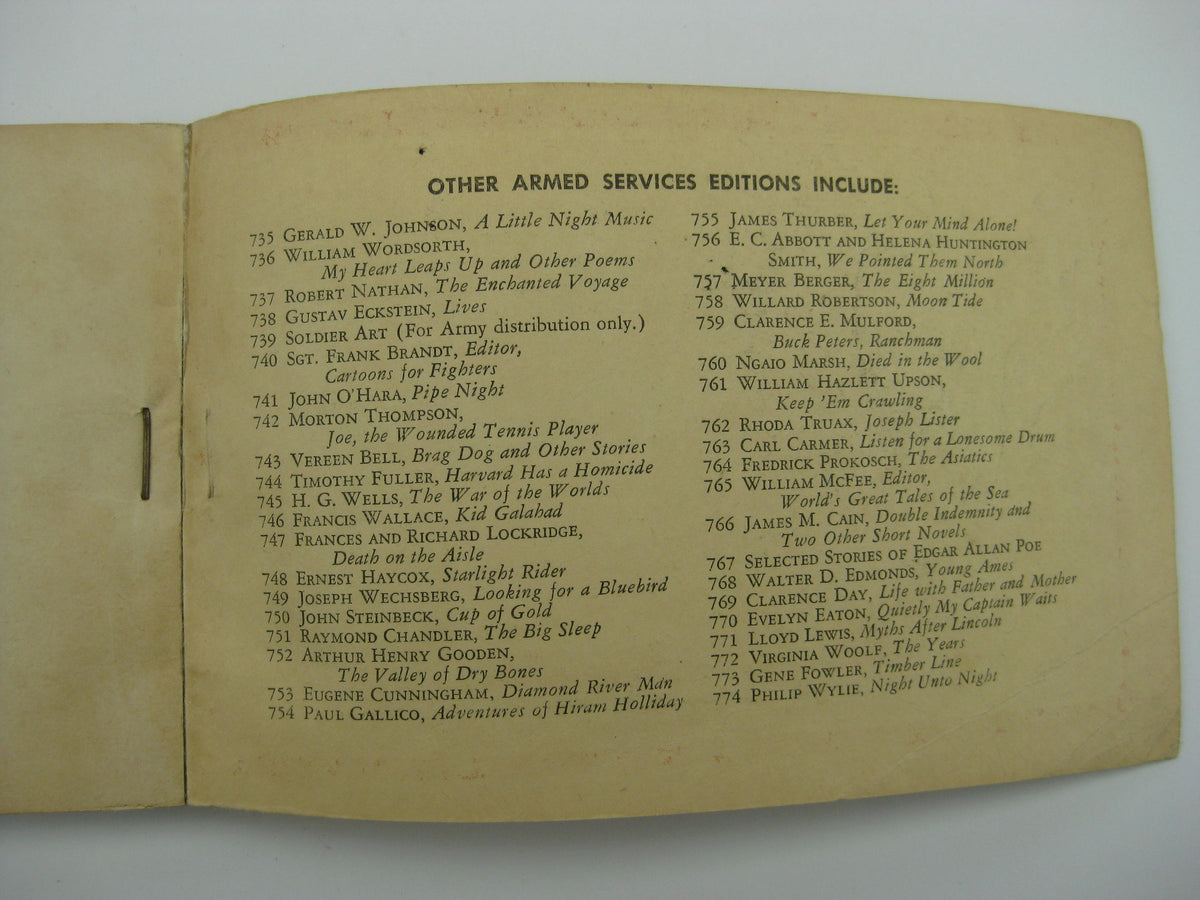 OTHER ARMED SERVICES EDITIONS INCLUDE:
735 GERALD W. JOHNSON, A Little Night Music
736 WILLIAM WORDSORTH,
My Heart Leaps Up and Other Poems
737 ROBERT NATHAN, The Enchanted Voyage
738 GUSTAV ECKSTEIN, Lives
739 SOLDIER ART (For Army distribution only.)
740 SGT. FRANK BRANDT, Editor,
Cartoons for Fighters
741 JOHN O'HARA, Pipe Night
742 MORTON THOMPSON,
Joe, the Wounded Tennis Player
743 VEREEN BELL, Brag Dog and Other Stories
744 TIMOTHY FULLER, Harvard Has a Homicide
745 H. G. WELLS, The War of the Worlds
746 FRANCIS WALLACE, Kid Galahad
747 FRANCES AND RICHARD LOCKRIDGE,
Death on the Aisle
748 ERNEST HAYCOX, Starlight Rider
749 JOSEPH WECHSBERG, Looking for a Bluebird
750 JOHN STEINBECK, Cup of Gold
751 RAYMOND CHANDLER, The Big Sleep
752 ARTHUR HENRY GOODEN,
The Valley of Dry Bones
753 EUGENE CUNNINGHAM, Diamond River Man
754 PAUL GALLICO, Adventures of Hiram Holliday
755 JAMES THURBER, Let Your Mind Alone!
756 E. C. ABBOTT AND HELENA HUNTINGTON
SMITH, We Pointed Them North
757 MEYER BERGER, The Eight Million
758 WILLARD ROBERTSON, Moon Tide
759 CLARENCE E. MULFORD,
Buck Peters, Ranchman
760 NGAIO MARSH, Died in the Wool
761 WILLIAM HAZLETT UPSON,
Keep 'Em Crawling
762 RHODA TRUAX, Joseph Lister
763 CARL CARMER, Listen for a Lonesome Drum
764 FREDRICK PROKOSCH, The Asiatics
765 WILLIAM MCFEE, Editor,
World's Great Tales of the Sea
766 JAMES M. CAIN, Double Indemnity and
Two Other Short Novels
767 SELECTED STORIES OF EDGAR ALLAN POE
768 WALTER D. EDMONDS, Young Ames
769 CLARENCE DAY, Life with Father and Mother
770 EVELYN EATON, Quietly My Captain Waits
771 LLOYD LEWIS, Myths After Lincoln
772 VIRGINIA WOOLF, The Years
773 GENE FOWLER, Timber Line
774 PHILIP WYLIE, Night Unto Night